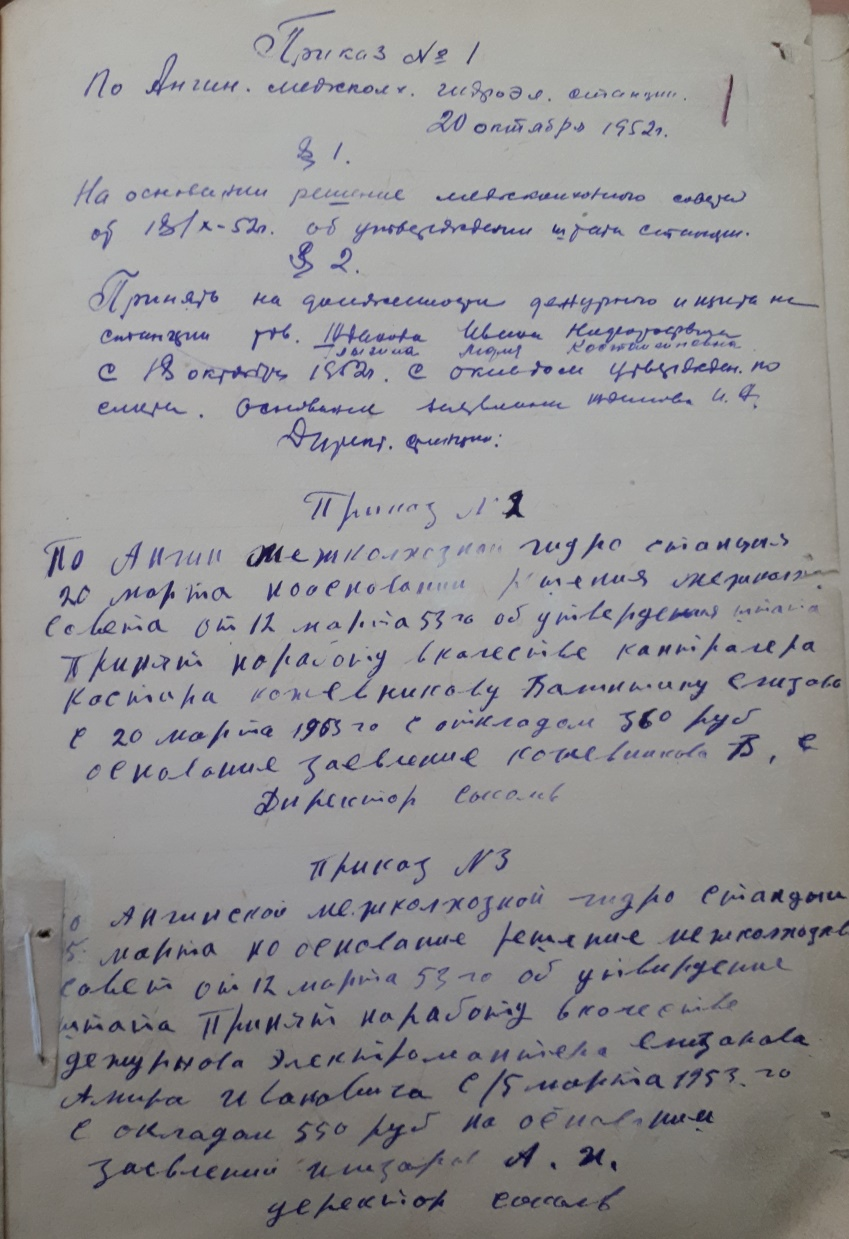 Приказ № 1
По Ангин. межколх. гидроэл. станции.
20 октября 1952г.
§ 1.
На основании решение межколхозного совета
от 18/X-52г. об утверждении штата станции.
§ 2.
Принять на должности дежурного и щита на
станции тов. Ивана
Лидия Костантиновна
С 18 октября 1952г. с окладом утвержден. по
смете. Основание заявление И.Ф.
Директ. станции:
Приказ N 2
По Ангин межколхозной гидро станция
20 марта нооснования решения межколхоз
Совета от 12 марта 53 го об утверждения штата
Принят ноработу вкачестве кантралера
Костира кожевникову Валинтину
с 20 марта 1953 го с откладом 360 руб
основание заевление кожевникова В, С
Директор
приказ N3
о Ангинской межколхозной гидро станции
5 марта но основание решение межколхозно
совет от 12 марта 53 го об утвирдение
штата Принят ноработу вкочестве
дежурнова электромантера
Иvановича С 15 марта 1953. го
с окладом 550 руб на основании
заевлений А. И.
деректор